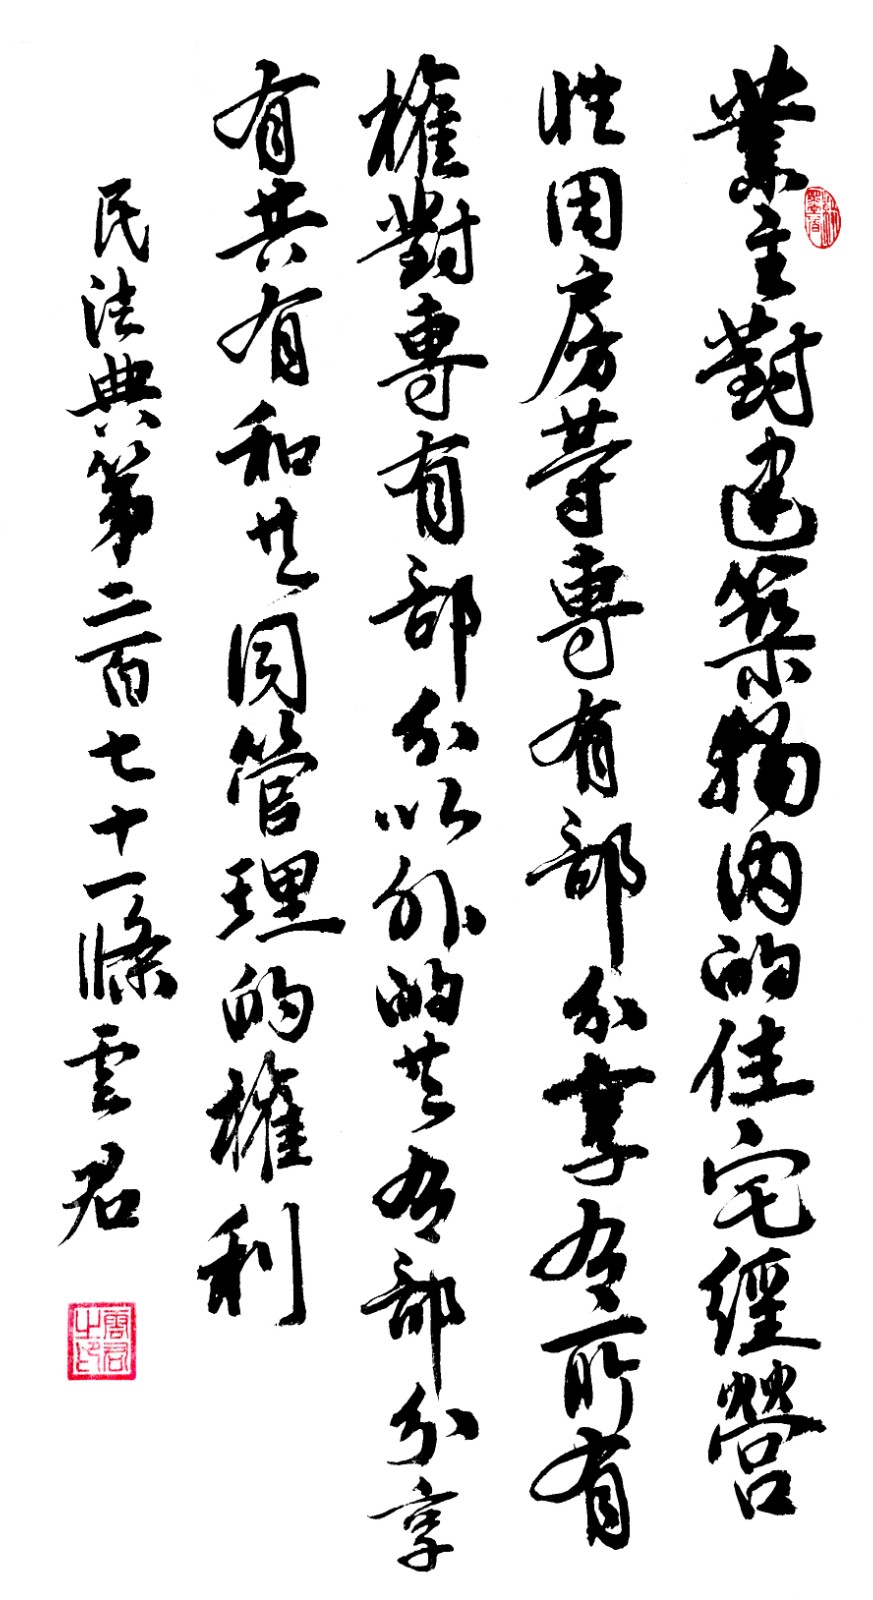 業主對建築物内的住宅經營
性用房等專有部分享有所有
權對專有部分以外的共有部分享
有共有和共同管理的權利
民法典第二百七十一條雲君
雲君之印